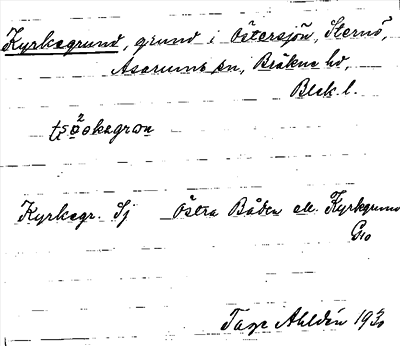 Kyrkegrund, grund i Östersjön, Sternö,
Asarums sn, Bräkne hd,
Blek. l.
Kyrkegr. Sj Östra Båden ell. Kyrkgrund
Gio
Tage Ahldén 1930